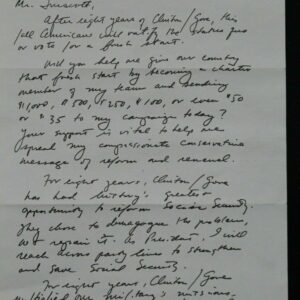 Mr. Truscott,
After eight years of Clinton/Gore, this
fall Americans will
or vote for a fresh start.
Will you help me give our country
that fresh start by becoming a charter
member of my team and sending
$1,000, $500, $250, $100, or even $50
or $35 to my campaign today?
Your support is vital to help me
spread my compassionate conservative
message of reform and renewal.
For eight years, Clinton/Gore
has had history's greatest
opportunity to reform Social Security.
They chose to demagogue the problem,
not repair it. As President, I will
reach across party lines to strengthen
and save Social Security.
For eight years, Clinton/Gore
our military's missions,